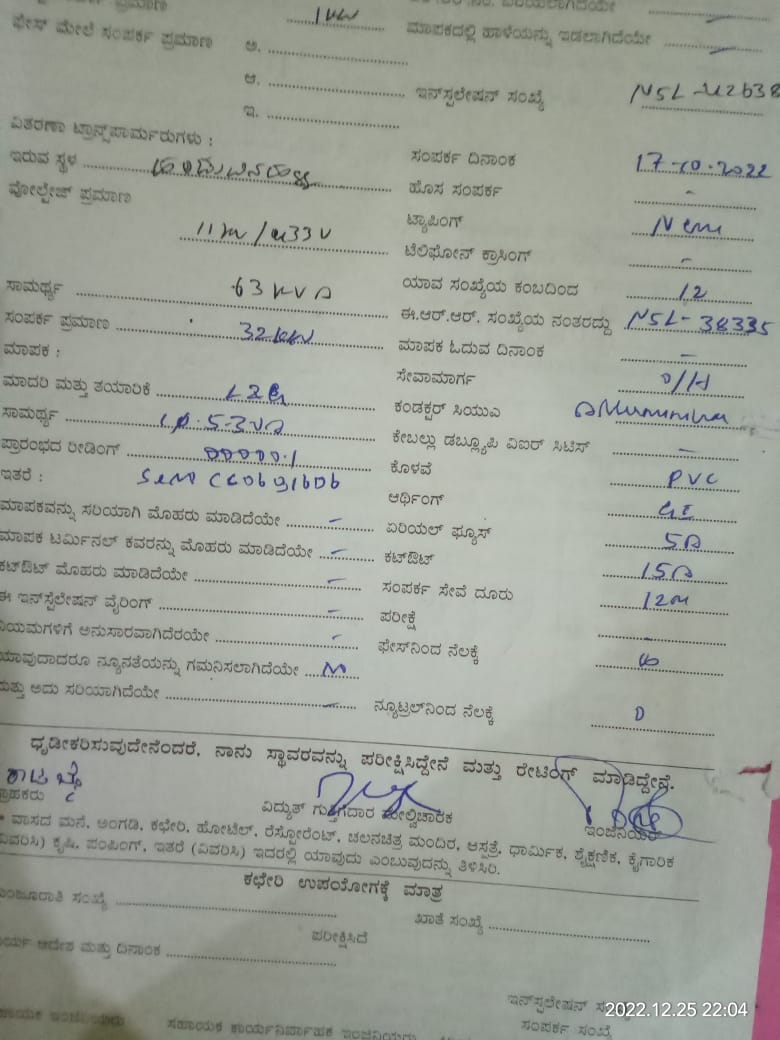 ಪ್ರಮಾಣ 1kw
ಫೇಸ್ ಮೇಲೆ ಸಂಪರ್ಕ ಪ್ರಮಾಣ ಅ.
ಮಾಪಕದಲ್ಲಿ ಹಾಳೆಯನ್ನು ಇಡಲಾಗಿದೆಯೇ
ಆ.
ಇನ್‌ಸ್ಟಲೇಷನ್ ಸಂಖ್ಯೆ
ಇ.
ವಿತರಣಾ ಟ್ರಾನ್ಸ್‌ಪಾರ್ಮರುಗಳು :
ಇರುವ ಸ್ಥಳ
ಸಂಪರ್ಕ ದಿನಾಂಕ 17-10-2022
ವೋಲ್ಟೇಜ್ ಪ್ರಮಾಣ
ಹೊಸ ಸಂಪರ್ಕ -
ಟ್ಯಾಪಿಂಗ್ New
ಟೆಲಿಫೋನ್ ಕ್ರಾಸಿಂಗ್ -
ಸಾಮರ್ಥ್ಯ 63 KVA
ಯಾವ ಸಂಖ್ಯೆಯ ಕಂಬದಿಂದ 12
ಸಂಪರ್ಕ ಪ್ರಮಾಣ 32kw
ಈ.ಆರ್.ಆರ್. ಸಂಖ್ಯೆಯ ನಂತರದ್ದು NSL-38335
ಮಾಪಕ :
ಮಾಪಕ ಓದುವ ದಿನಾಂಕ -
ಮಾದರಿ ಮತ್ತು ತಯಾರಿಕೆ
ಸೇವಾಮಾರ್ಗ O/H
ಸಾಮರ್ಥ್ಯ
ಕಂಡಕ್ಟರ್ ಸಿಯುಎ
ಪ್ರಾರಂಭದ ರೀಡಿಂಗ್ 00000.1
ಕೇಬಲ್ಲು ಡಬ್ಲ್ಯೂಪಿ ವಿಐರ್ ಸಿಟಿಸ್ -
ಇತರೆ :
ಕೊಳವೆ PVC
ಮಾಪಕವನ್ನು ಸರಿಯಾಗಿ ಮೊಹರು ಮಾಡಿದೆಯೇ -
ಆರ್ಥಿಂಗ್ GI
ಮಾಪಕ ಟರ್ಮಿನಲ್ ಕವರನ್ನು ಮೊಹರು ಮಾಡಿದೆಯೇ -
ಏರಿಯಲ್ ಫ್ಯೂಸ್ 5A
ಕಟ್‌ಔಟ್ ಮೊಹರು ಮಾಡಿದೆಯೇ -
ಕಟ್‌ಔಟ್ 15A
ಈ ಇನ್‌ಸ್ಟೆಲೇಷನ್ ವೈರಿಂಗ್ -
ಸಂಪರ್ಕ ಸೇವೆ ದೂರು 12m
ನಿಯಮಗಳಿಗೆ ಅನುಸಾರವಾಗಿದೆರಯೇ -
ಪರೀಕ್ಷೆ -
ಯಾವುದಾದರೂ ನ್ಯೂನತೆಯನ್ನು ಗಮನಿಸಲಾಗಿದೆಯೇ
ಫೇಸ್‌ನಿಂದ ನೆಲಕ್ಕೆ
ಮತ್ತು ಅದು ಸರಿಯಾಗಿದೆಯೇ -
ನ್ಯೂಟ್ರಲ್‌ನಿಂದ ನೆಲಕ್ಕೆ 0
ಧೃಡೀಕರಿಸುವುದೇನೆಂದರೆ, ನಾನು ಸ್ಥಾವರವನ್ನು ಪರೀಕ್ಷಿಸಿದ್ದೇನೆ ಮತ್ತು ರೇಟಿಂಗ್ ಮಾಡಿದ್ದೇನೆ.
ಗ್ರಾಹಕರು ವಿದ್ಯುತ್ ಗುತ್ತಿಗೆದಾರ ಮೇಲ್ವಿಚಾರಕ ಇಂಜಿನಿಯರ್
* ವಾಸದ ಮನೆ, ಅಂಗಡಿ, ಕಛೇರಿ, ಹೋಟೆಲ್, ರೆಸ್ಟೋರೆಂಟ್, ಚಲನಚಿತ್ರ ಮಂದಿರ, ಆಸ್ಪತ್ರೆ, ಧಾರ್ಮಿಕ, ಶೈಕ್ಷಣಿಕ, ಕೈಗಾರಿಕ
(ವಿವರಿಸಿ) ಕೃಷಿ, ಪಂಪಿಂಗ್, ಇತರೆ (ವಿವರಿಸಿ) ಇದರಲ್ಲಿ ಯಾವುದು ಎಂಬುವುದನ್ನು ತಿಳಿಸಿರಿ.
ಕಛೇರಿ ಉಪಯೋಗಕ್ಕೆ ಮಾತ್ರ
ಮಂಜೂರಾತಿ ಸಂಖ್ಯೆ
ಖಾತೆ ಸಂಖ್ಯೆ
ಪರೀಕ್ಷಿಸಿದೆ
ಕಾರ್ಯ ಆದೇಶ ಮತ್ತು ದಿನಾಂಕ
2022.12.25 22:04
ಸಂಪರ್ಕ ಸಂಖ್ಯೆ
ಸಹಾಯಕ ಇಂಜಿನಿಯರು ಸಹಾಯಕ ಕಾರ್ಯನಿರ್ವಾಹಕ ಇಂಜಿನಿಯರು